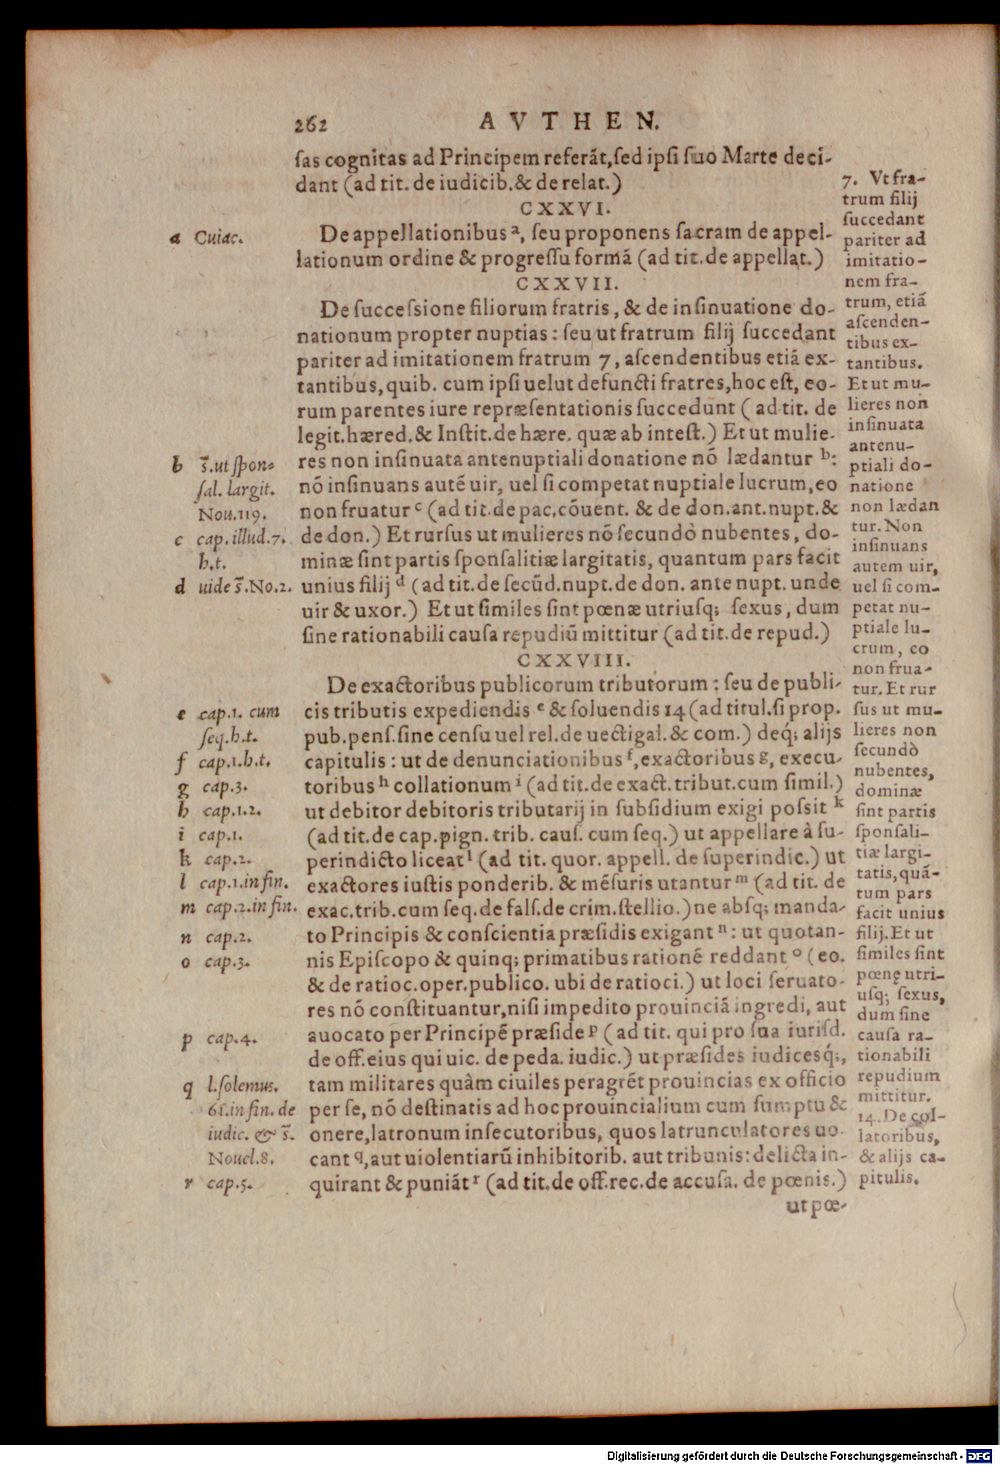 262 AVTHEN.
ſas cognitas ad Principem referāt, ſed ipſi ſuo Marte deci-
dant (ad tit. de iudicib. & de relat.)
CXXVI.
De appellationibus ª, ſeu proponens ſacram de appel-
lationum ordine & progreſſu formā (ad tit. de appellat.)
CXXVII.
De ſucceſsione filiorum fratris, & de inſinuatione do-
nationum propter nuptias: ſeu ut fratrum filij ſuccedant
pariter ad imitationem fratrum 7, aſcendentibus etiā ex-
tantibus, quib. cum ipſi uelut defuncti fratres, hoc eſt, eo-
rum parentes iure repræſentationis ſuccedunt (ad tit. de
legit. hæred. & Inſtit. de hære. quæ ab inteſt.) Et ut mulie-
res non inſinuata antenuptiali donatione nō lædantur ᵇ:
nō inſinuans autē uir, uel ſi competat nuptiale lucrum, eo
non fruatur ᶜ (ad tit. de pac. cōuent. & de don. ant. nupt. &
de don.) Et rurſus ut mulieres nō ſecundò nubentes, do-
minæ ſint partis ſponſalitiæ largitatis, quantum pars facit
unius filij ᵈ (ad tit. de ſecūd. nupt. de don. ante nupt. unde
uir & uxor.) Et ut ſimiles ſint pœnæ utriuſq; ſexus, dum
ſine rationabili cauſa repudiū mittitur (ad tit. de repud.)
CXXVIII.
De exactoribus publicorum tributorum: ſeu de publi-
cis tributis expediendis ᵉ & ſoluendis 14 (ad titul. ſi prop.
pub. penſ. ſine cenſu uel rel. de uectigal. & com.) deq́; alijs
capitulis: ut de denunciationibus ᶠ, exactoribus ᵍ, execu-
toribus ʰ collationum ⁱ (ad tit. de exact. tribut. cum ſimil.)
ut debitor debitoris tributarij in ſubſidium exigi poſsit ᵏ
(ad tit. de cap. pign. trib. cauſ. cum ſeq.) ut appellare à ſu-
perindicto liceat ˡ (ad tit. quor. appell. de ſuperindic.) ut
exactores iuſtis ponderib. & mēſuris utantur ᵐ (ad tit. de
exac. trib. cum ſeq. de falſ. de crim. ſtellio.) ne abſq; manda-
to Principis & conſcientia præſidis exigant ⁿ: ut quotan-
nis Epiſcopo & quinq; primatibus rationē reddant ᵒ (eo.
& de ratioc. oper. publico. ubi de ratioci.) ut loci ſeruato-
res nō conſtituantur, niſi impedito prouinciā ingredi, aut
auocato per Principē præſide ᵖ (ad tit. qui pro ſua iuriſd.
de off. eius qui uic. de peda. iudic.) ut præſides iudicesq́;,
tam militares quàm ciuiles peragrēt prouincias ex officio
per ſe, nō deſtinatis ad hoc prouincialium cum ſumptu &
onere, latronum inſecutoribus, quos latrunculatores uo-
cant q, aut uiolentiarū inhibitorib. aut tribunis: delicta in-
quirant & puniāt ʳ (ad tit. de off. rec. de accuſa. de pœnis.)
ut pœ-
a Cuiac.
b s̄. ut ſpon-
ſal. largit.
Nou. 119.
c cap. illud. 7.
h. t.
d uide s̄. No. 2.
e cap. 1. cum
ſeq. h. t.
f cap. 1. h. t.
g cap. 3.
h cap. 1. 2.
i cap. 1.
k cap. 2.
l cap. 1. in fin.
m cap. 2. in fin.
n cap. 2.
o cap. 3.
p cap. 4.
q l. ſolemus.
61. in fin. de
iudic. & s̄.
Nouel. 8.
r cap. 5.
7. Vt fra-
trum filij
ſuccedant
pariter ad
imitatio-
nem fra-
trum, etiā
aſcenden-
tibus ex-
tantibus.
Et ut mu-
lieres non
inſinuata
antenu-
ptiali do-
natione
non lædan
tur. Non
inſinuans
autem uir,
uel ſi com-
petat nu-
ptiale lu-
crum, eo
non frua-
tur. Et rur
ſus ut mu-
lieres non
ſecundò
nubentes,
dominæ
ſint partis
ſponſali-
tiæ largi-
tatis, quā-
tum pars
facit unius
filij. Et ut
ſimiles ſint
pœnę utri-
uſq; ſexus,
dum ſine
cauſa ra-
tionabili
repudium
mittitur.
14. De col-
latoribus,
& alijs ca-
pitulis.
Digitalisierung gefördert durch die Deutsche Forschungsgemeinschaft - DFG